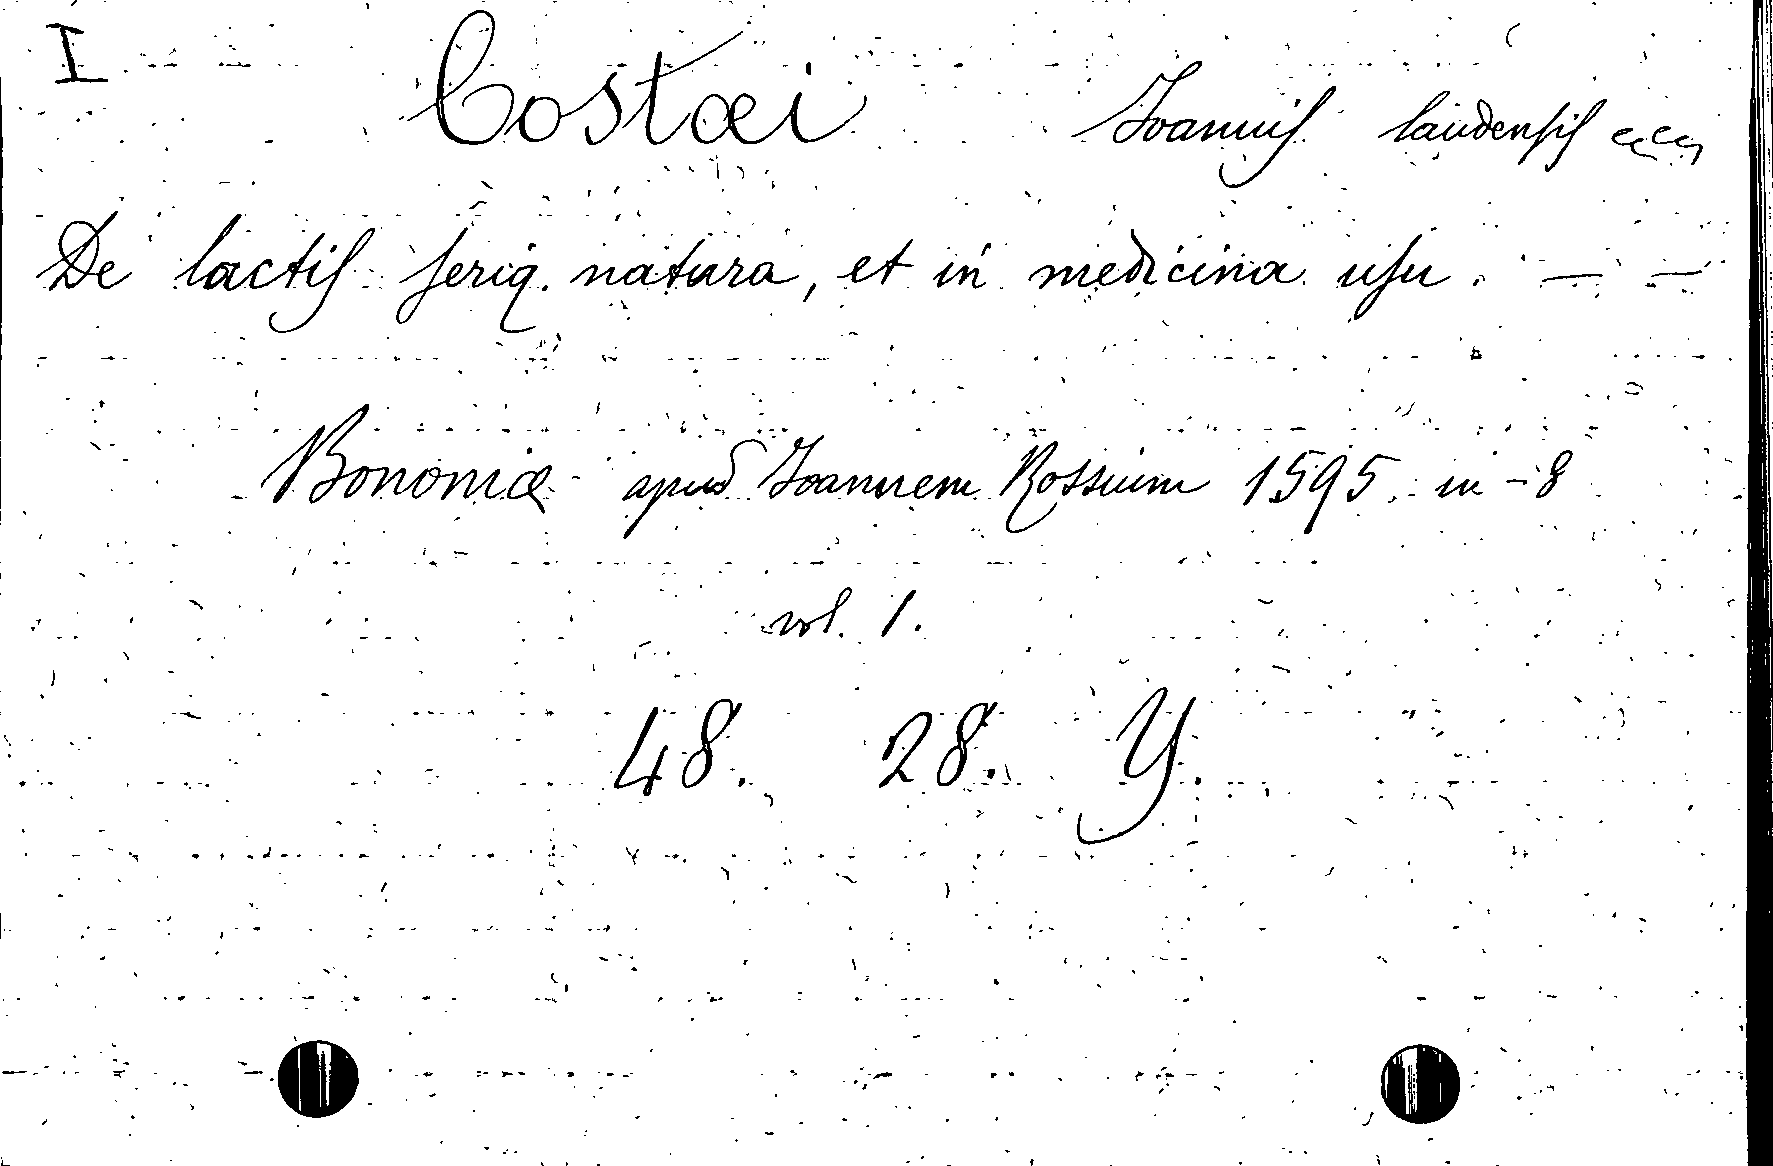 I Costæi Joannis laudensis
De lactis seriq. natura, et in medicina usu. — —
Bononiæ apud Joannem Rossium 1595. in-8
vol. 1.
48. 28. Y.